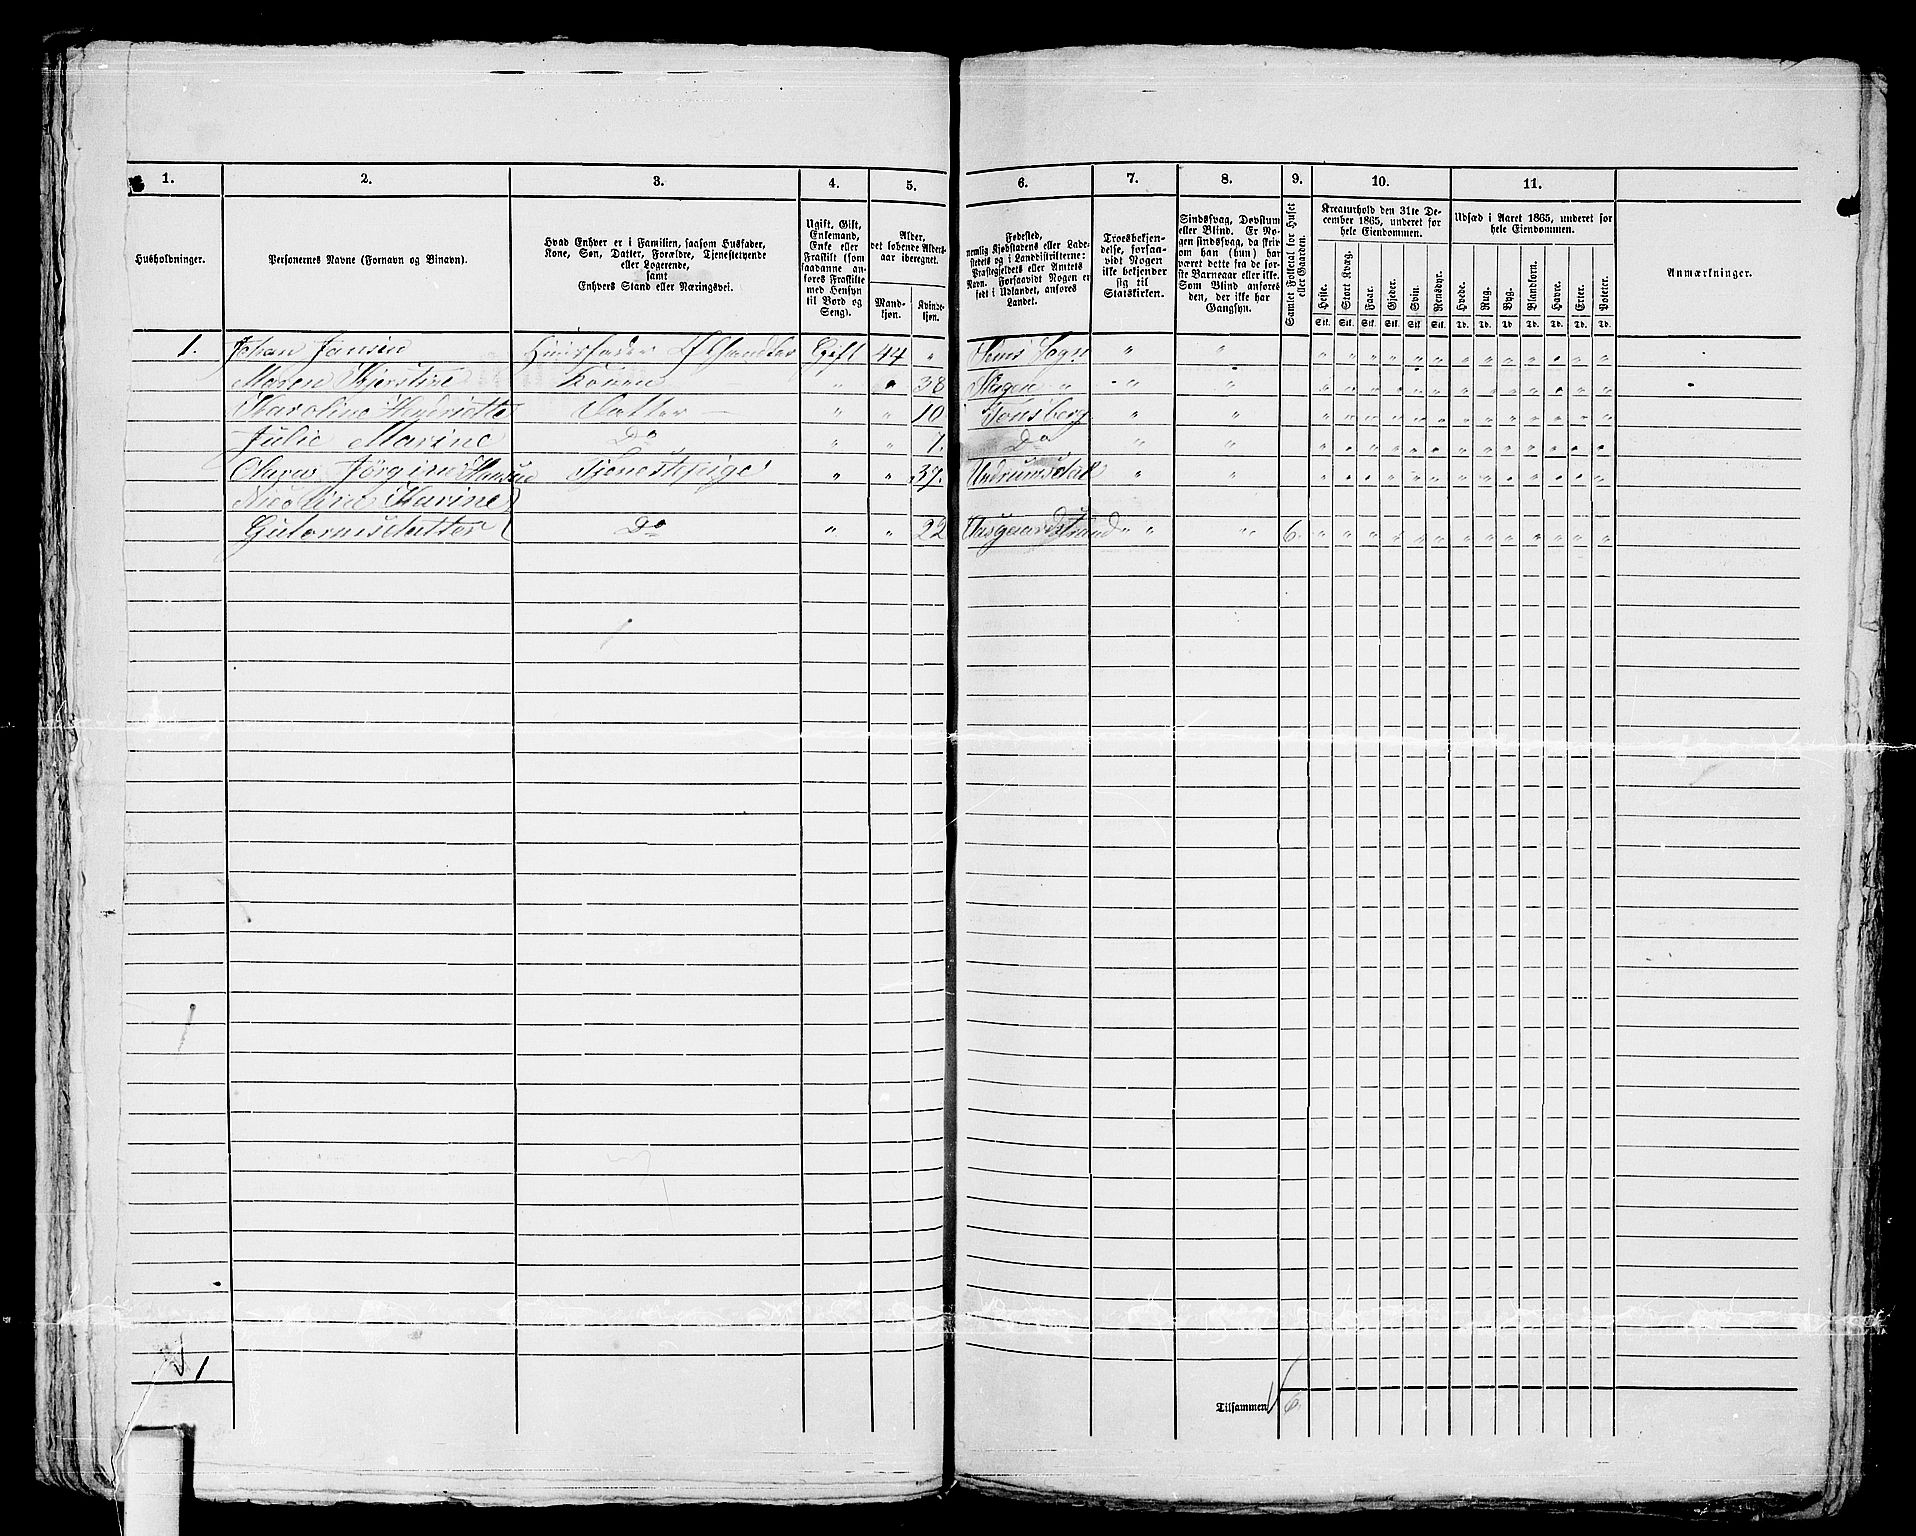 1. 2. 3. 4. 5. 6. 7. 8. 9. 10. 11.
Husholdninger.
Personernes Navne (Fornavn og Binavn).
Hvad Enhver er i Familien, saasom Husfader,
Kone, Søn, Datter, Forældre, Tjenestetyende
eller Logerende,
samt
Enhvers Stand eller Næringsvei.
Ugift, Gift,
Enkemand,
Enke eller
Fraskilt (som
saadanne an-
føres Fraskilte
med Hensyn
til Bord og
Seng).
Alder,
det løbende Alders-
aar iberegnet.
Mand-
kjøn.
Kvinde-
kjøn.
Fødested,
nemlig Kjøbstadens eller Lade-
stedets og i Landdistrikterne:
Præstegjeldets eller Amtets
Navn. Forsaavidt Nogen er
født i Udlandet, anføres
Landet.
Troesbekjen-
delse, forsaa-
vidt Nogen
ikke bekjender
sig til
Statskirken.
Sindssvag, Døvstum
eller Blind. Er No-
gen sindssvag, da skriv
om han (hun) har
været dette fra de før-
ste Barneaar eller ikke.
Som Blind anføres
den, der ikke har
Gangsyn.
Samlet Folketal for Huset
eller Gaarden.
Kreaturhold den 31te De-
cember 1865, underet for
hele Eiendommen.
Heste. Stort Kvæg. Faar. Gjeder. Svin. Rensdyr.
Stk. Stk. Stk. Stk. Stk. Stk.
Udsæd i Aaret 1865, underet for
hele Eiendommen.
Hvede. Rug. Byg. Blandkorn. Havre. Erter. Poteter.
Td. Td. Td. Td. Td. Td. Td.
Anmærkninger.
1. Johan Jansen Huusfader Gift 44 " Sems Sogn " "
Maren Kjerstine Konen " " 38 Slagen " " "
Karoline Hendriette Datter " " 10 Tønsberg " "
Julie Marine Do " " 7. Do " "
Jørgine Hansen Tjenestepige " " 37. Undrumsdal " "
Nicoline Karine
Gutormsdatter Do " " 22 Aasgaardstrand " " " 6.
1
Tilsammen 6